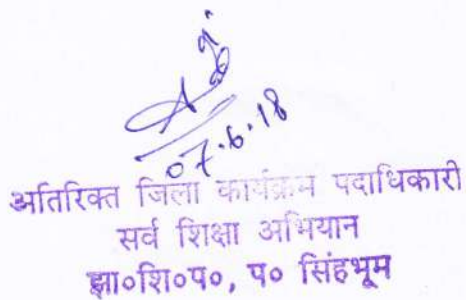 07.6.18
अतिरिक्त जिला कार्यक्रम पदाधिकारी
सर्व शिक्षा अभियान
झा०शि०प०, प० सिंहभूम